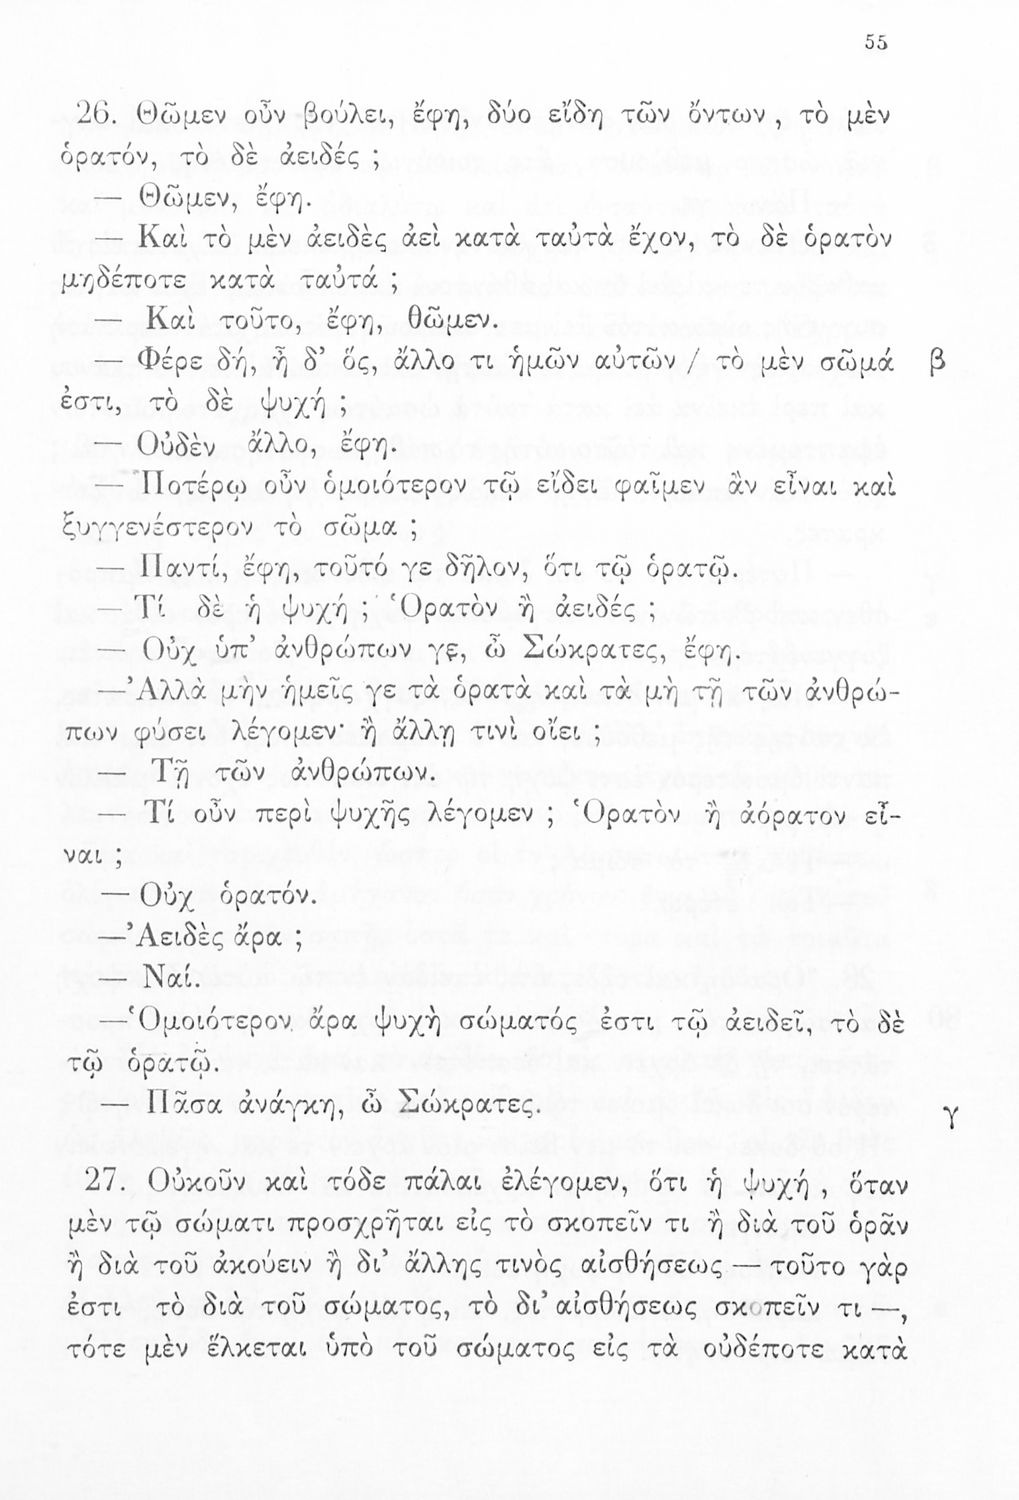 55
26. Θῶμεν οὖν βούλει, ἔφη, δύο εἴδη τῶν ὄντων, τὸ μὲν
ὁρατόν, τὸ δὲ ἀειδές ;
— Θῶμεν, ἔφη.
— Καὶ τὸ μὲν ἀειδὲς ἀεὶ κατὰ ταὐτὰ ἔχον, τὸ δὲ ὁρατὸν
μηδέποτε κατὰ ταὐτά ;
— Καὶ τοῦτο, ἔφη, θῶμεν.
— Φέρε δή, ἦ δ’ ὅς, ἄλλο τι ἡμῶν αὐτῶν / τὸ μὲν σῶμά β
ἐστι, τὸ δὲ ψυχή ;
— Οὐδὲν ἄλλο, ἔφη.
— Ποτέρῳ οὖν ὁμοιότερον τῷ εἴδει φαῖμεν ἂν εἶναι καὶ
ξυγγενέστερον τὸ σῶμα ;
— Παντί, ἔφη, τοῦτό γε δῆλον, ὅτι τῷ ὁρατῷ.
— Τί δὲ ἡ ψυχή ; Ὁρατὸν ἢ ἀειδές ;
— Οὐχ ὑπ’ ἀνθρώπων γε, ὦ Σώκρατες, ἔφη.
— Ἀλλὰ μὴν ἡμεῖς γε τὰ ὁρατὰ καὶ τὰ μὴ τῇ τῶν ἀνθρώ-
πων φύσει λέγομεν· ἢ ἄλλῃ τινὶ οἴει ;
— Τῇ τῶν ἀνθρώπων.
— Τί οὖν περὶ ψυχῆς λέγομεν ; Ὁρατὸν ἢ ἀόρατον εἶ-
ναι ;
— Οὐχ ὁρατόν.
— Ἀειδὲς ἄρα ;
— Ναί.
— Ὁμοιότερον ἄρα ψυχὴ σώματός ἐστι τῷ ἀειδεῖ, τὸ δὲ
τῷ ὁρατῷ.
— Πᾶσα ἀνάγκη, ὦ Σώκρατες. γ
27. Οὐκοῦν καὶ τόδε πάλαι ἐλέγομεν, ὅτι ἡ ψυχή, ὅταν
μὲν τῷ σώματι προσχρῆται εἰς τὸ σκοπεῖν τι ἢ διὰ τοῦ ὁρᾶν
ἢ διὰ τοῦ ἀκούειν ἢ δι’ ἄλλης τινὸς αἰσθήσεως — τοῦτο γάρ
ἐστι τὸ διὰ τοῦ σώματος, τὸ δι’ αἰσθήσεως σκοπεῖν τι —,
τότε μὲν ἕλκεται ὑπὸ τοῦ σώματος εἰς τὰ οὐδέποτε κατὰ